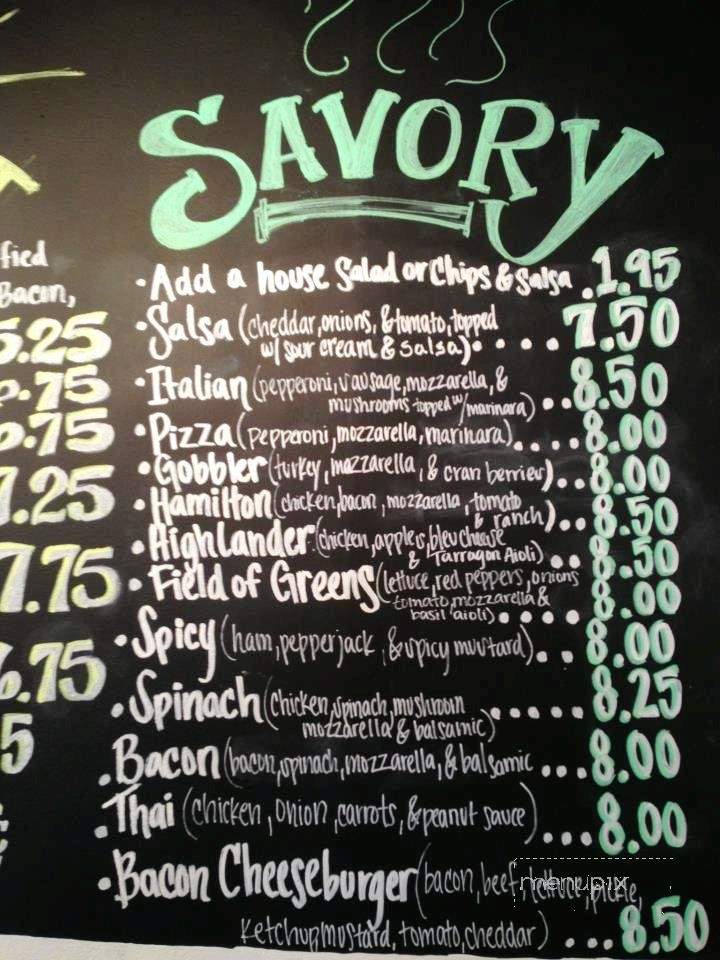 SAVORY
fied
Bacon,
5.25
.75
.75
7.25
7.75
6.75
5
• Add a house Salad or Chips & Salsa .1.95
• Salsa (cheddar, onions, & tomato, topped
w/ sour cream & salsa) • . . . 7.50
• Italian (pepperoni, sausage, mozzarella, &
mushrooms topped w/ marinara) ..8.50
• Pizza (pepperoni, mozzarella, marinara)....8.00
• Gobbler (turkey, mozzarella, & cran berries)..8.00
• Hamilton (chicken, bacon, mozzarella, tomato
& ranch)..8.50
• Highlander (chicken, apples, bleu cheese
& Tarragon Aioli)..8.50
• Field of Greens (lettuce, red peppers, onions
tomato, mozzarella &
basil aioli).....8.00
• Spicy (ham, pepperjack, & spicy mustard)...8.00
• Spinach (chicken, spinach, mushroom
mozzarella & balsamic) .....8.25
• Bacon (bacon, spinach, mozzarella, & balsamic ...8.00
• Thai (chicken, onion, carrots, & peanut sauce) ...8.00
• Bacon Cheeseburger (bacon, beef, lettuce, pickle,
Ketchup, mustard, tomato, cheddar) ...8.50
menupix